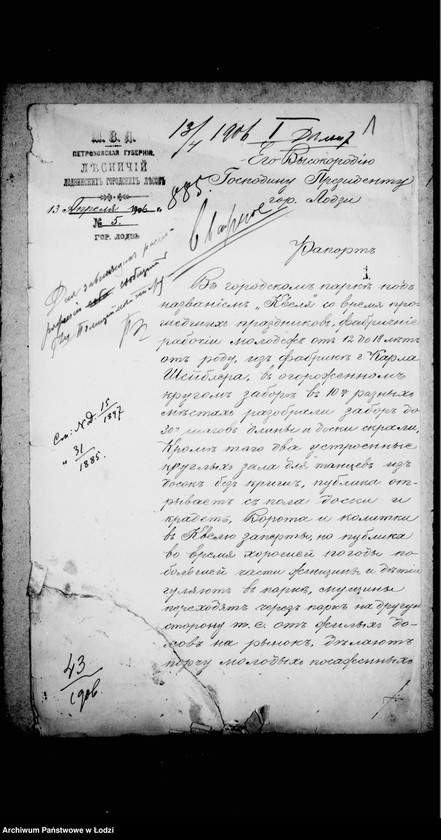 13/4 1906 I
1
М. В. Д.
ПЕТРОКОВСКАЯ ГУБЕРНІЯ.
ЛѢСНИЧІЙ
ЛОДЗИНСКИХЪ ГОРОДСКИХЪ ЛѢСОВЪ
13 Апрѣля 1906 г.
№ 5.
ГОР. ЛОДЗЬ.
885.
Его Высокородію
Господину Президенту
гор. Лодзи
Срочное
Рапортъ
Въ городскомъ паркѣ подъ
названіемъ „Квеля“ со время про-
шедшихъ праздниковъ, фабричные
рабочіи молодежь отъ 12 до 18 лѣтъ
отъ роду, изъ фабрикъ г. Карла
Шейблера, въ огороженномъ
кругомъ заборѣ въ 10и разныхъ
мѣстахъ разобрали заборъ до
30и шаговъ длины и доски скрали,
Кромѣ того два устроенные
круглыхъ зала для танцевъ изъ
досокъ безъ крыши, публика от-
рываетъ съ пола доски и
крадетъ, Ворота и калитки
въ Квелю заперты, но публика
во время хорошей погоды по
большей части женщины и дѣти
гуляютъ въ паркѣ, мущины
переходятъ черезъ паркъ на другую
сторону т. е. отъ жилыхъ до-
мовъ на рынокъ, дѣлаютъ
порчу молодыхъ посаженныхъ
См: №Д. 15/1897
" 31/1885.
43/1906.
Archiwum Państwowe w Łodzi